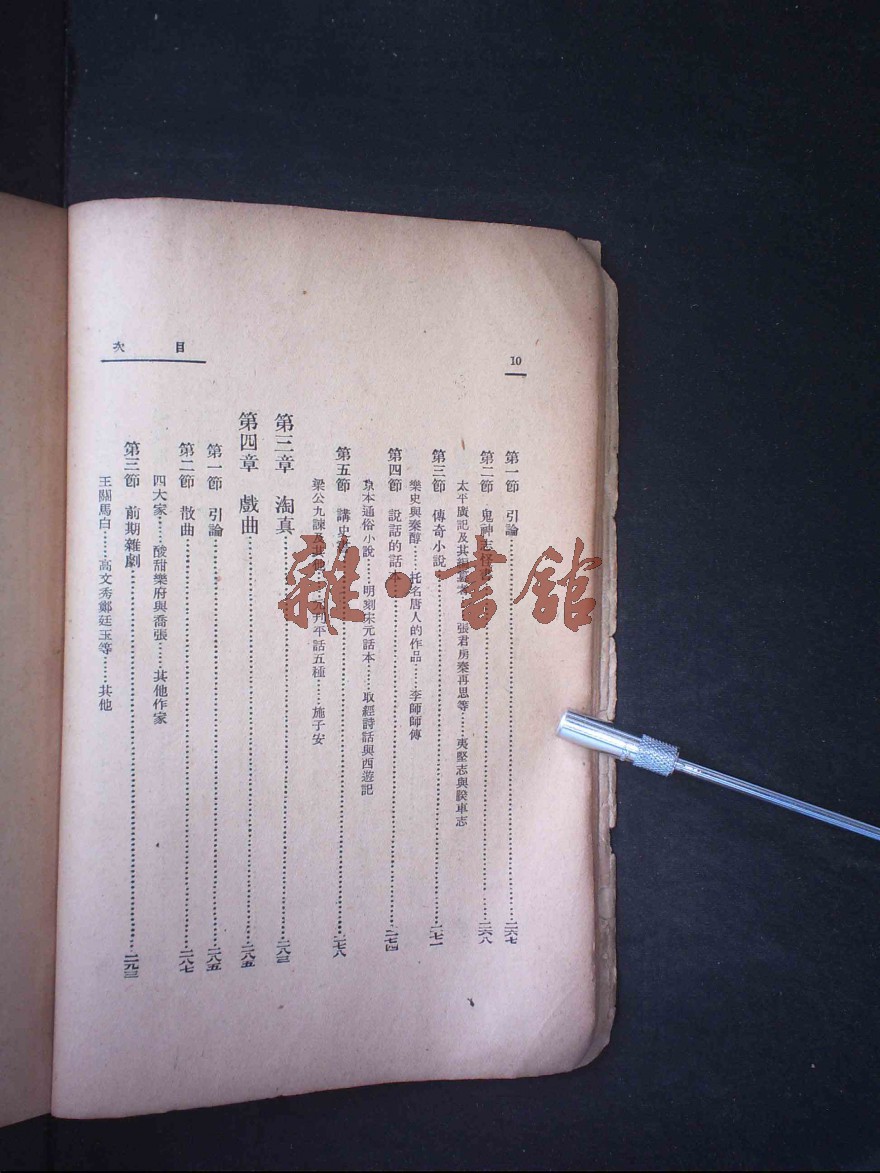 10
目次
第一節 引論……二六七
第二節 鬼神志怪書……二六八
太平廣記及其……張君房秦再思等……夷堅志與睽車志
第三節 傳奇小說……二七一
樂史與秦醇……托名唐人的作品……李師師傳
第四節 說話的話本……二七四
京本通俗小說……明刻宋元話本……取經詩話與西遊記
第五節 講史書……二七八
梁公九諫及其他……元刊平話五種……施子安
第三章 淘真……二八三
第四章 戲曲……二八五
第一節 引論……二八五
第二節 散曲……二八七
四大家……酸甜樂府與喬張……其他作家
第三節 前期雜劇……二九三
王關馬白……高文秀鄭廷玉等……其他
雜·書館